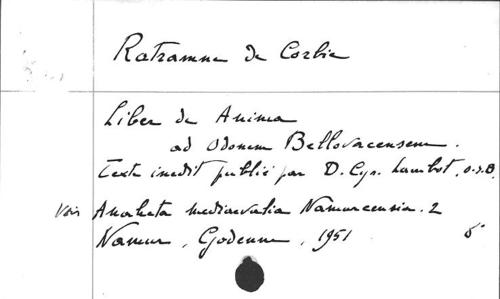 Ratramne de Corbie
Liber de Anima
ad Odonem Bellovacensem.
Texte inédit publié par D. Cyr. Lambot, o.s.B.
Voir Analecta mediaevalia Namurcensia. 2
Namur, Godenne, 1951 8°